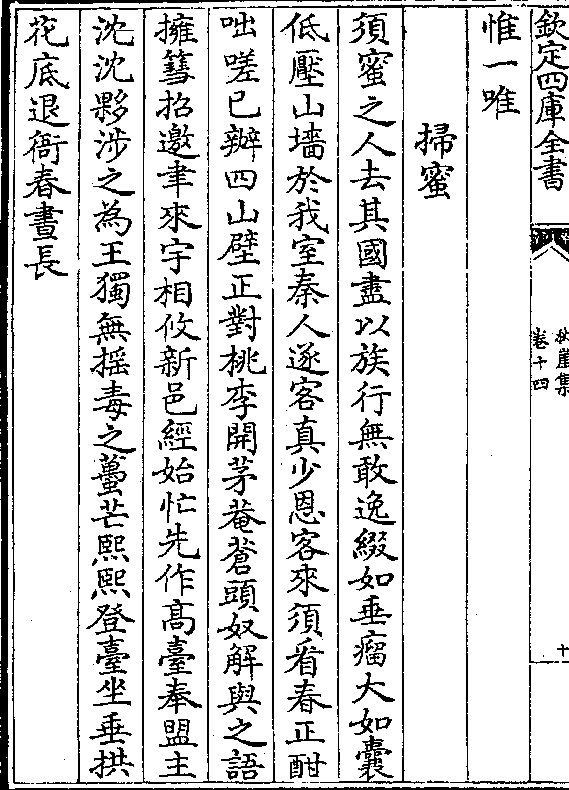 欽定四庫全書
秋崖集
卷十四
十
惟一唯
掃蜜
須蜜之人去其國盡以族行無敢逸綴如垂瘤大如囊
低壓山墻於我室秦人逐客真少恩客來須看春正酣
咄嗟已辦四山壁正對桃李開茅菴蒼頭奴解與之語
擁篲招邀聿來宇相攸新邑經始忙先作髙臺奉盟主
沈沈夥涉之為王獨無揺毒之蠆芒熙熙登臺坐垂拱
花底退衙春晝長